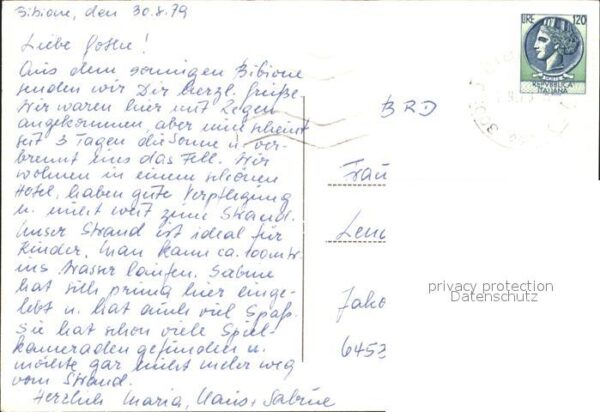 Bibione, den 30.8.79
Liebe
Aus dem sonnigen Bibione
senden wir Dir herzl. Grüße.
Wir waren hier mit Regen
angekommen, aber nun scheint
seit 3 Tagen die Sonne u. ver-
brennt uns das Fell. Wir
wohnen in einem schönen
Hotel, haben gute Verpflegung
u. nicht weit zum Strand.
Unser Strand ist ideal für
Kinder, man kann ca. 100 mtr
ins Wasser laufen. Sabine
hat sich prima hier einge-
lebt u. hat auch viel Spaß.
Sie hat schon viele Spiel-
kameraden gefunden u.
möchte gar nicht mehr weg
vom Strand.
Herzlich Maria, Hans + Sabine
LIRE 120
REPVBBLICA
ITALIANA
BRD
Frau
Jako
6453
privacy protection
Datenschutz